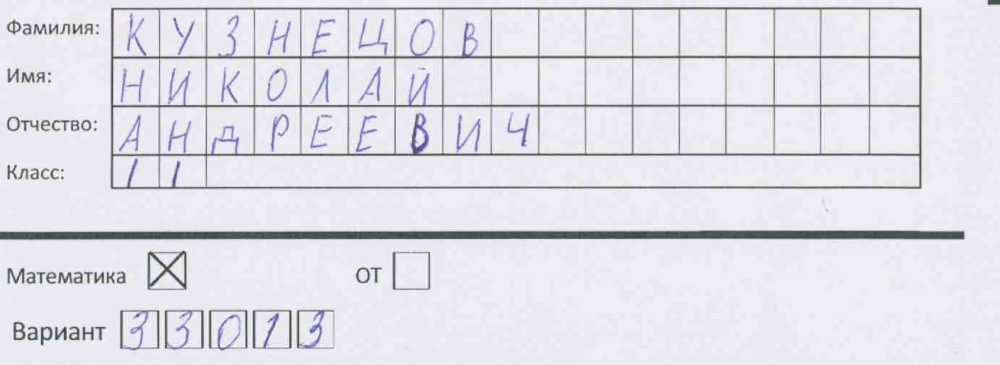 Фамилия: КУЗНЕЦОВ
Имя: НИКОЛАЙ
Отчество: АНДРЕЕВИЧ
Класс: 11
Математика ОТ
Вариант 33013